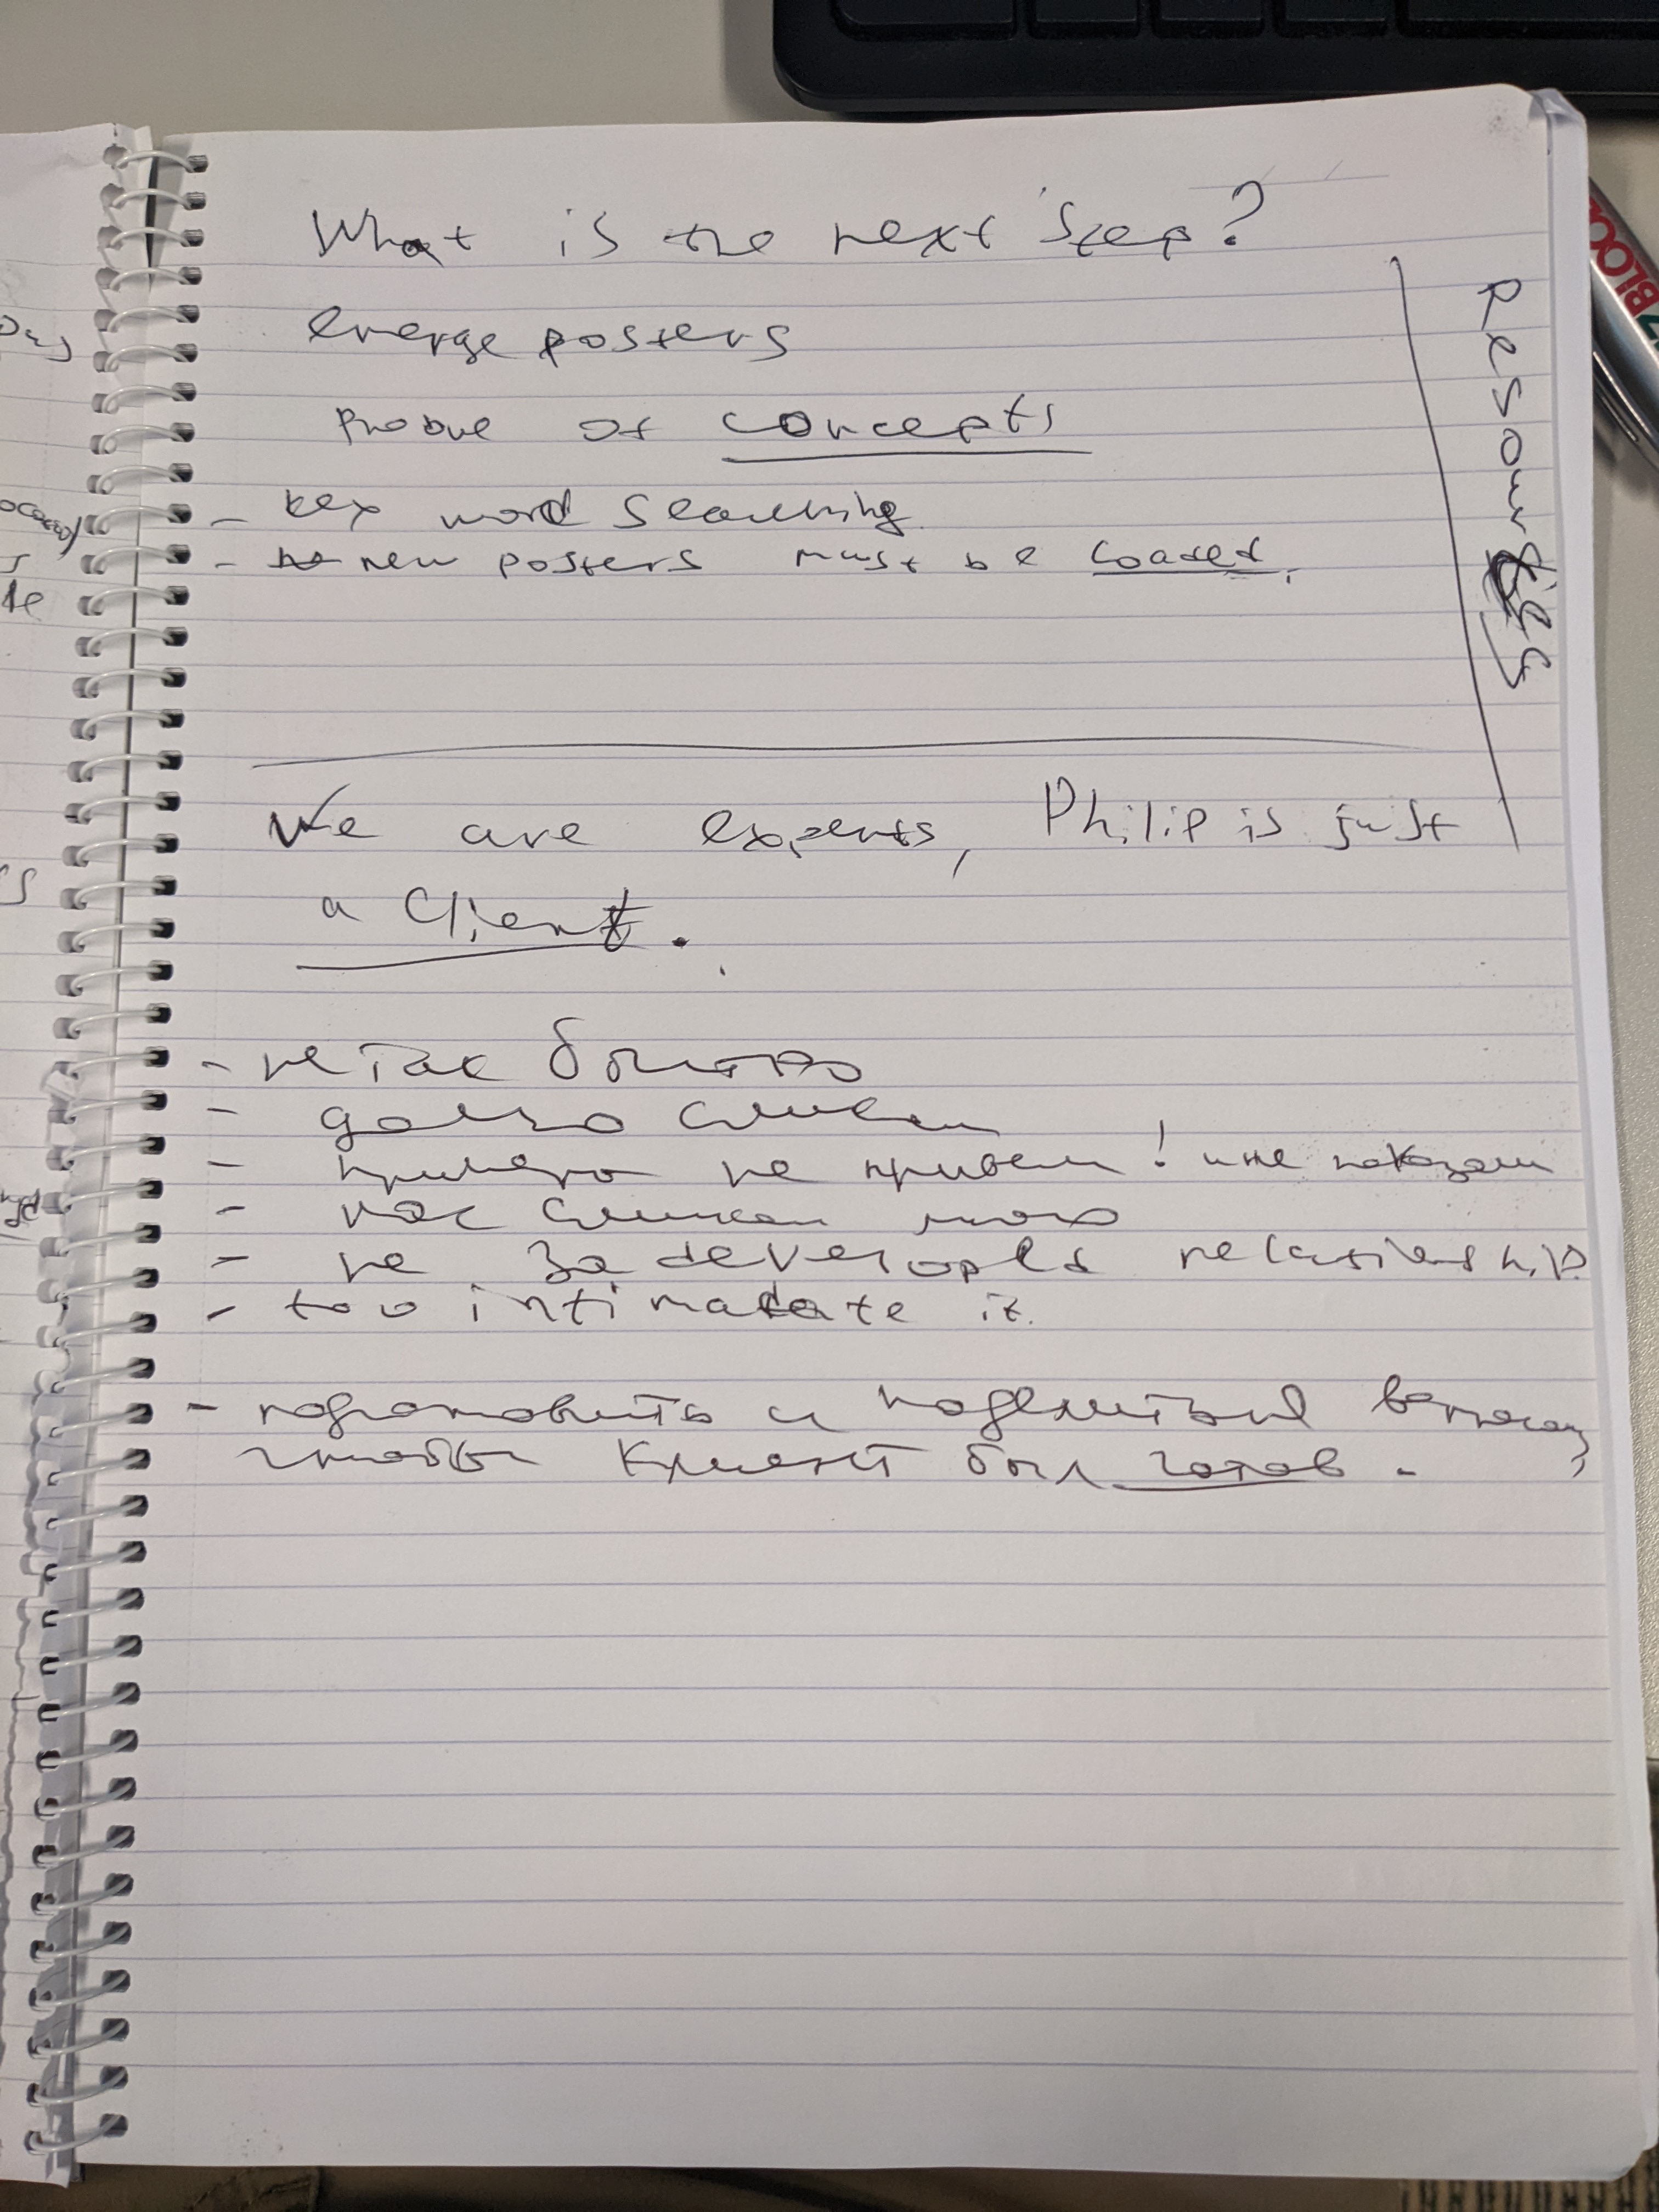 What is the next step?
energe posters
Probve of concepts
- key word searching
- new posters must be loadet.
Ressourses
We are experts, Philip is just
a client.
- не так быстро
- долго
- примера не привели! и не показали
- нас слишком много
- не за developed relationship.
- too intimadate it.
- подготовить и поделиться
чтобы клиент был готов.
BLOO